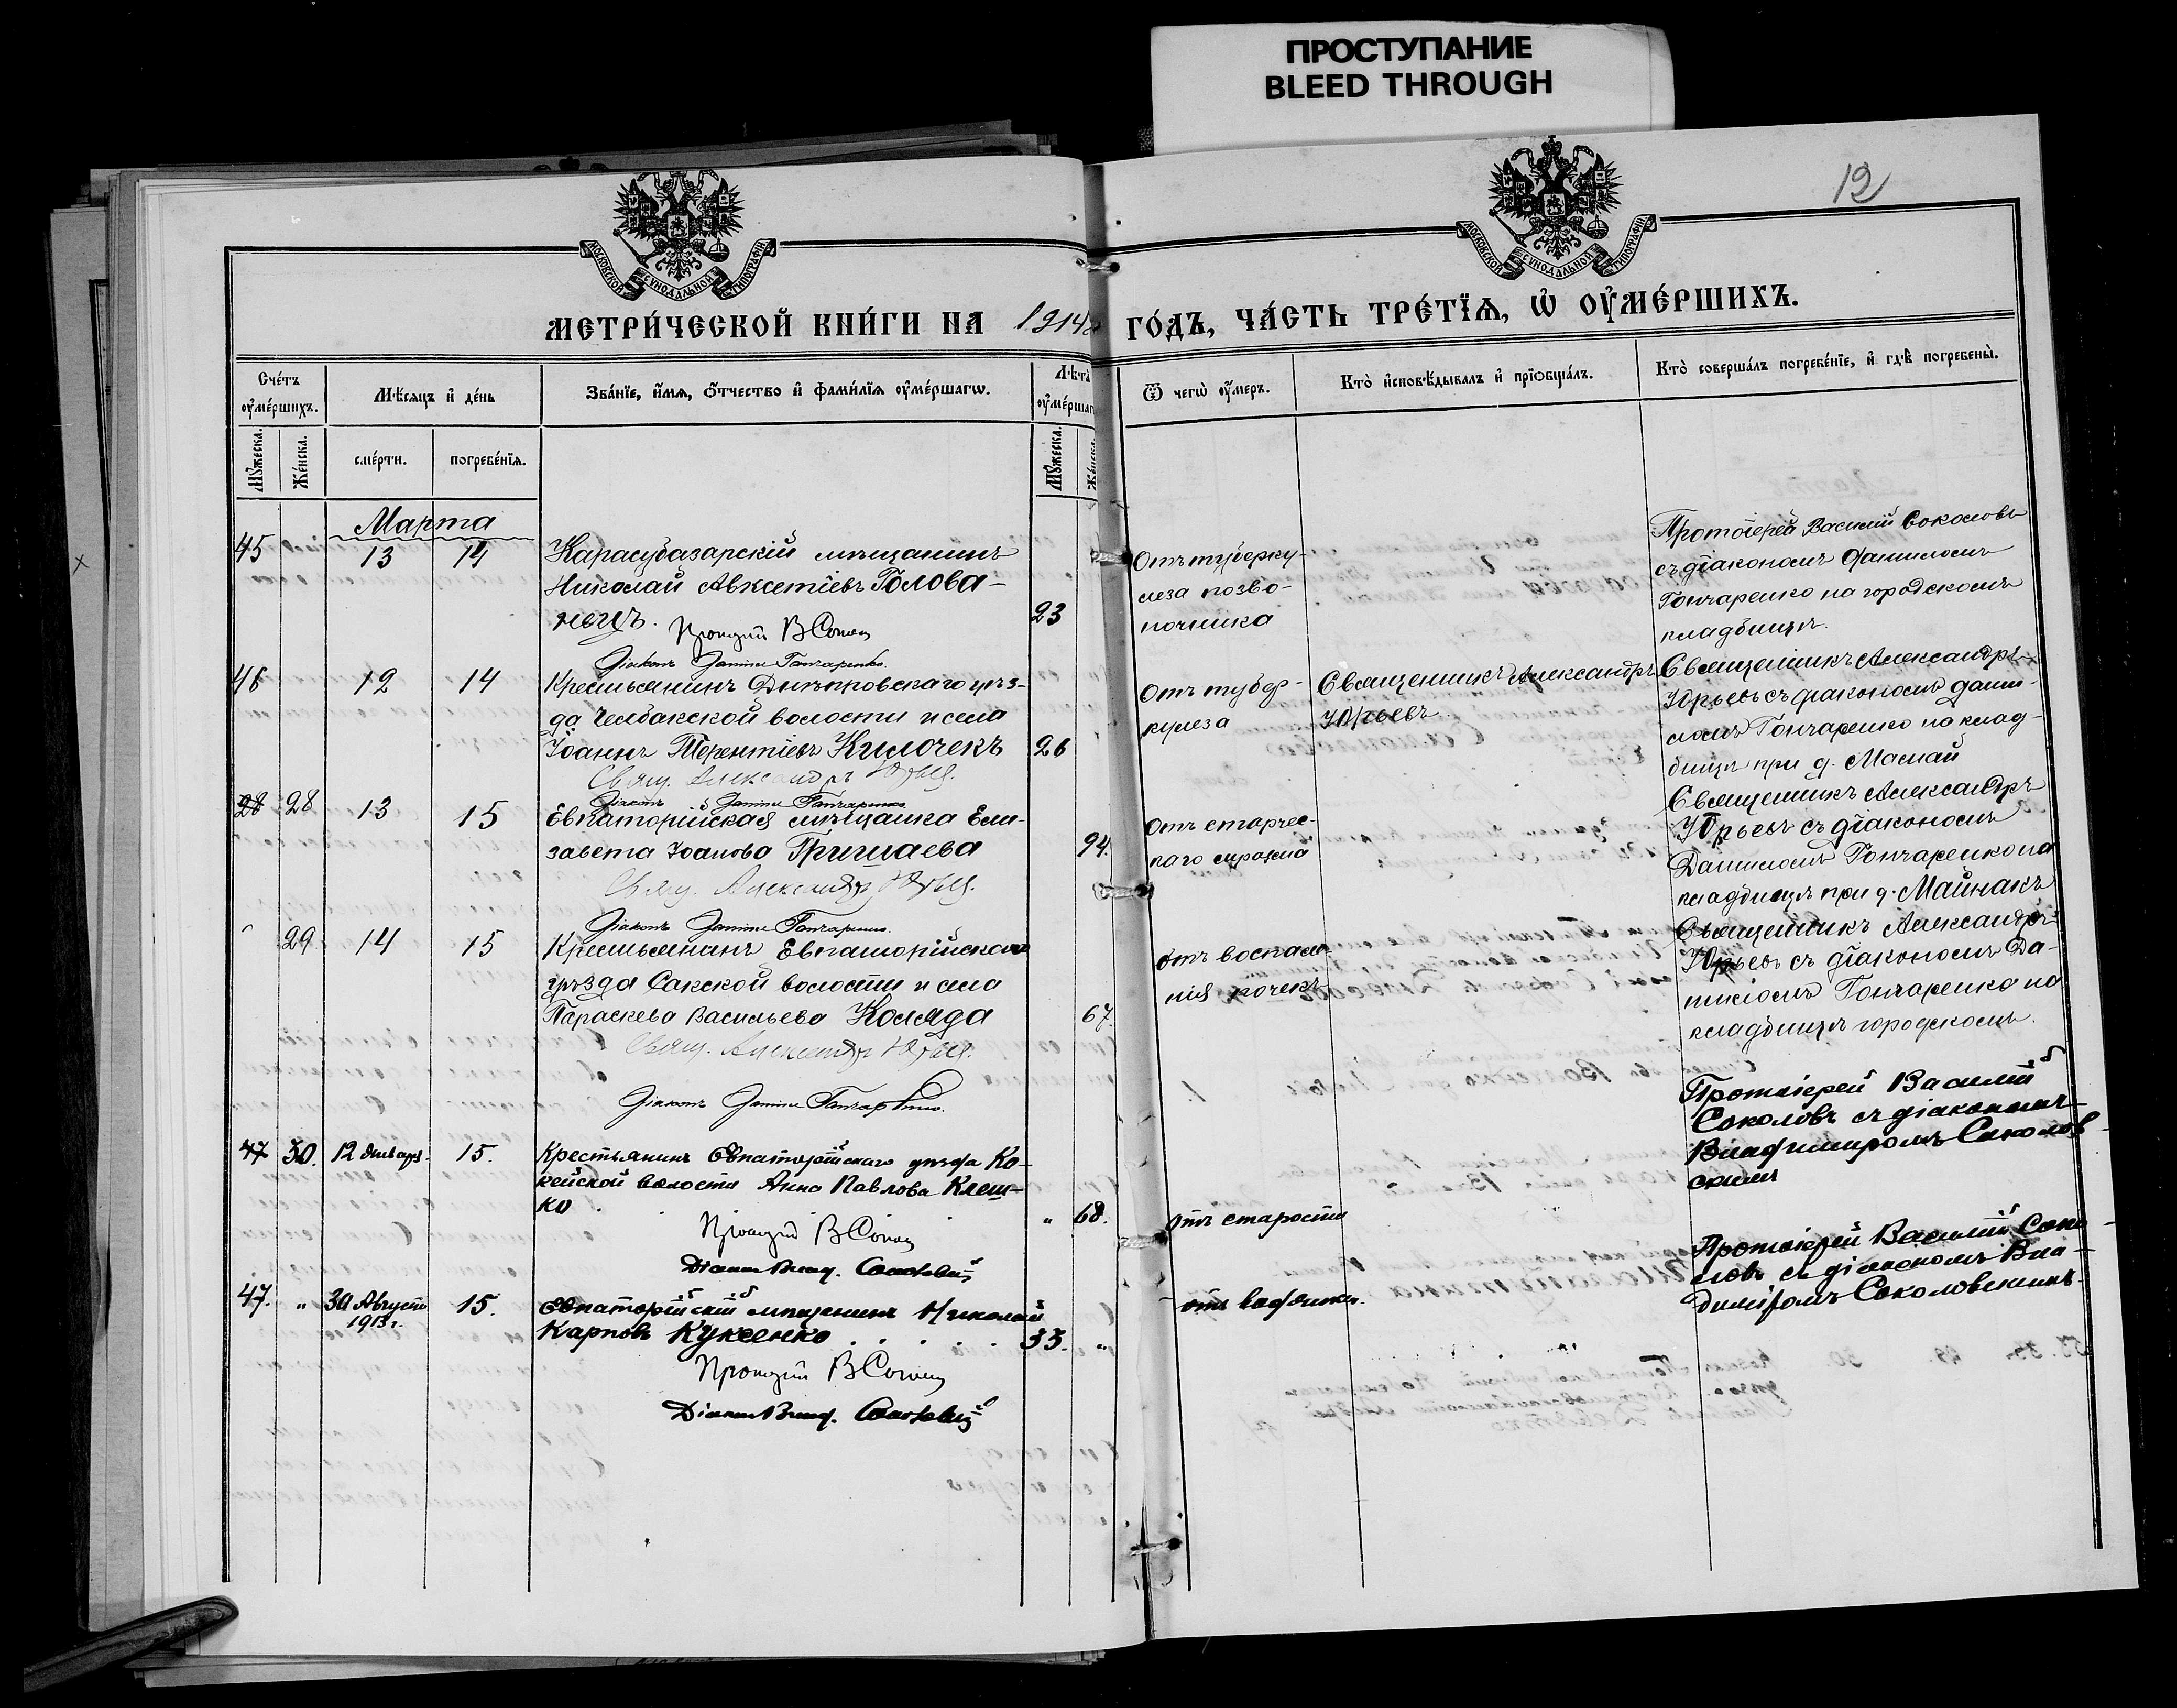 ПРОСТУПАНИЕ
BLEED THROUGH
12
МОСКОВСКОЙ СѴНОДАЛЬНОЙ ТИПОГРАФІИ
МОСКОВСКОЙ СѴНОДАЛЬНОЙ ТИПОГРАФІИ
МЕТРИ́ЧЕСКОЙ КНИ́ГИ НА 1914
ГО́ДЪ, ЧА́СТЬ ТРЕ́ТЇѦ, Ѡ҆ ОУ҆МЕ́РШИХЪ.
Сче́тъ оу҆ме́ршихъ.
Мѣ́сяцъ и҆ де́нь
Зва́нїе, и҆́мя, ѻ҆́тчество и҆ фами́лїя оу҆ме́ршагѡ.
Лѣ́та оу҆ме́ршаг
Ѿ чегѡ̀ оу҆́меръ.
Кто̀ и҆сповѣ́дывалъ и҆ прїѡбща́лъ.
Кто̀ соверша́лъ погребе́нїе, и҆ гдѣ̀ погребены̀.
Мꙋ́жеска.
Же́нска.
сме́рти.
погребе́нїя.
Мꙋ́жеска.
Же́нска.
Марта
45 13 14 Карасубазарскій мѣщанинъ
Николай Авксетіевъ Голова-
нецъ. 23
Діаконъ Даніилъ Гончаренко.
Отъ туберку-
леза позво-
ночника
Протоіерей Василій Соколовъ
съ діакономъ Даниломъ
Гончаренко на городскомъ
кладбищѣ.
46 12 14 Крестьянинъ Днѣпровскаго уѣз-
да Челбакской волости и села
Іоаннъ Терентіевъ Килочекъ 26
Свящ. Александръ Юрьев.
Діаконъ Даніилъ Гончаренко.
Отъ тубер-
кулеза
Священникъ Александръ
Юрьевъ
Священникъ Александръ
Юрьевъ съ діакономъ Дани-
ломъ Гончаренко на клад-
бищѣ при д. Мамай
28 28 13 15 Евпаторійская мѣщанка Ели-
завета Іоанова Гришаева 94.
Свящ. Александръ Юрьев.
Діаконъ Даніилъ Гончаренко.
Отъ старчес-
каго маразма
Священникъ Александръ
Юрьевъ съ діакономъ
Даниломъ Гончаренко на
кладбищѣ при д. Майнакъ
29 14 15 Крестьянинъ Евпаторійскаго
уѣзда Сакской волости и села
Параскева Васильева Коляда 67.
Свящ. Александръ Юрьев.
Діаконъ Даніилъ Гончаренко.
отъ воспале-
нія почекъ
Священникъ Александръ
Юрьевъ съ діакономъ Да-
ниломъ Гончаренко на
кладбищѣ городскомъ.
47 30. 12 Января. 15. Крестьянинъ Евпаторійскаго уѣзда Ко-
кейской волости Анна Павлова Клеш-
ко „ 68.
Діаконъ Влад. Соколовскій
отъ старости
Протоіерей Василій
Соколовъ съ діакономъ
Владимиромъ Соколов-
скимъ
47. „ 30 Августа 1913 г. 15. Евпаторійскій мѣщанинъ Николай
Карповъ Куксенко 33. „
Діаконъ Влад. Соколовскій
отъ водянки.
Протоіерей Василій Соко-
ловъ съ діакономъ Вла-
диміромъ Соколовскимъ